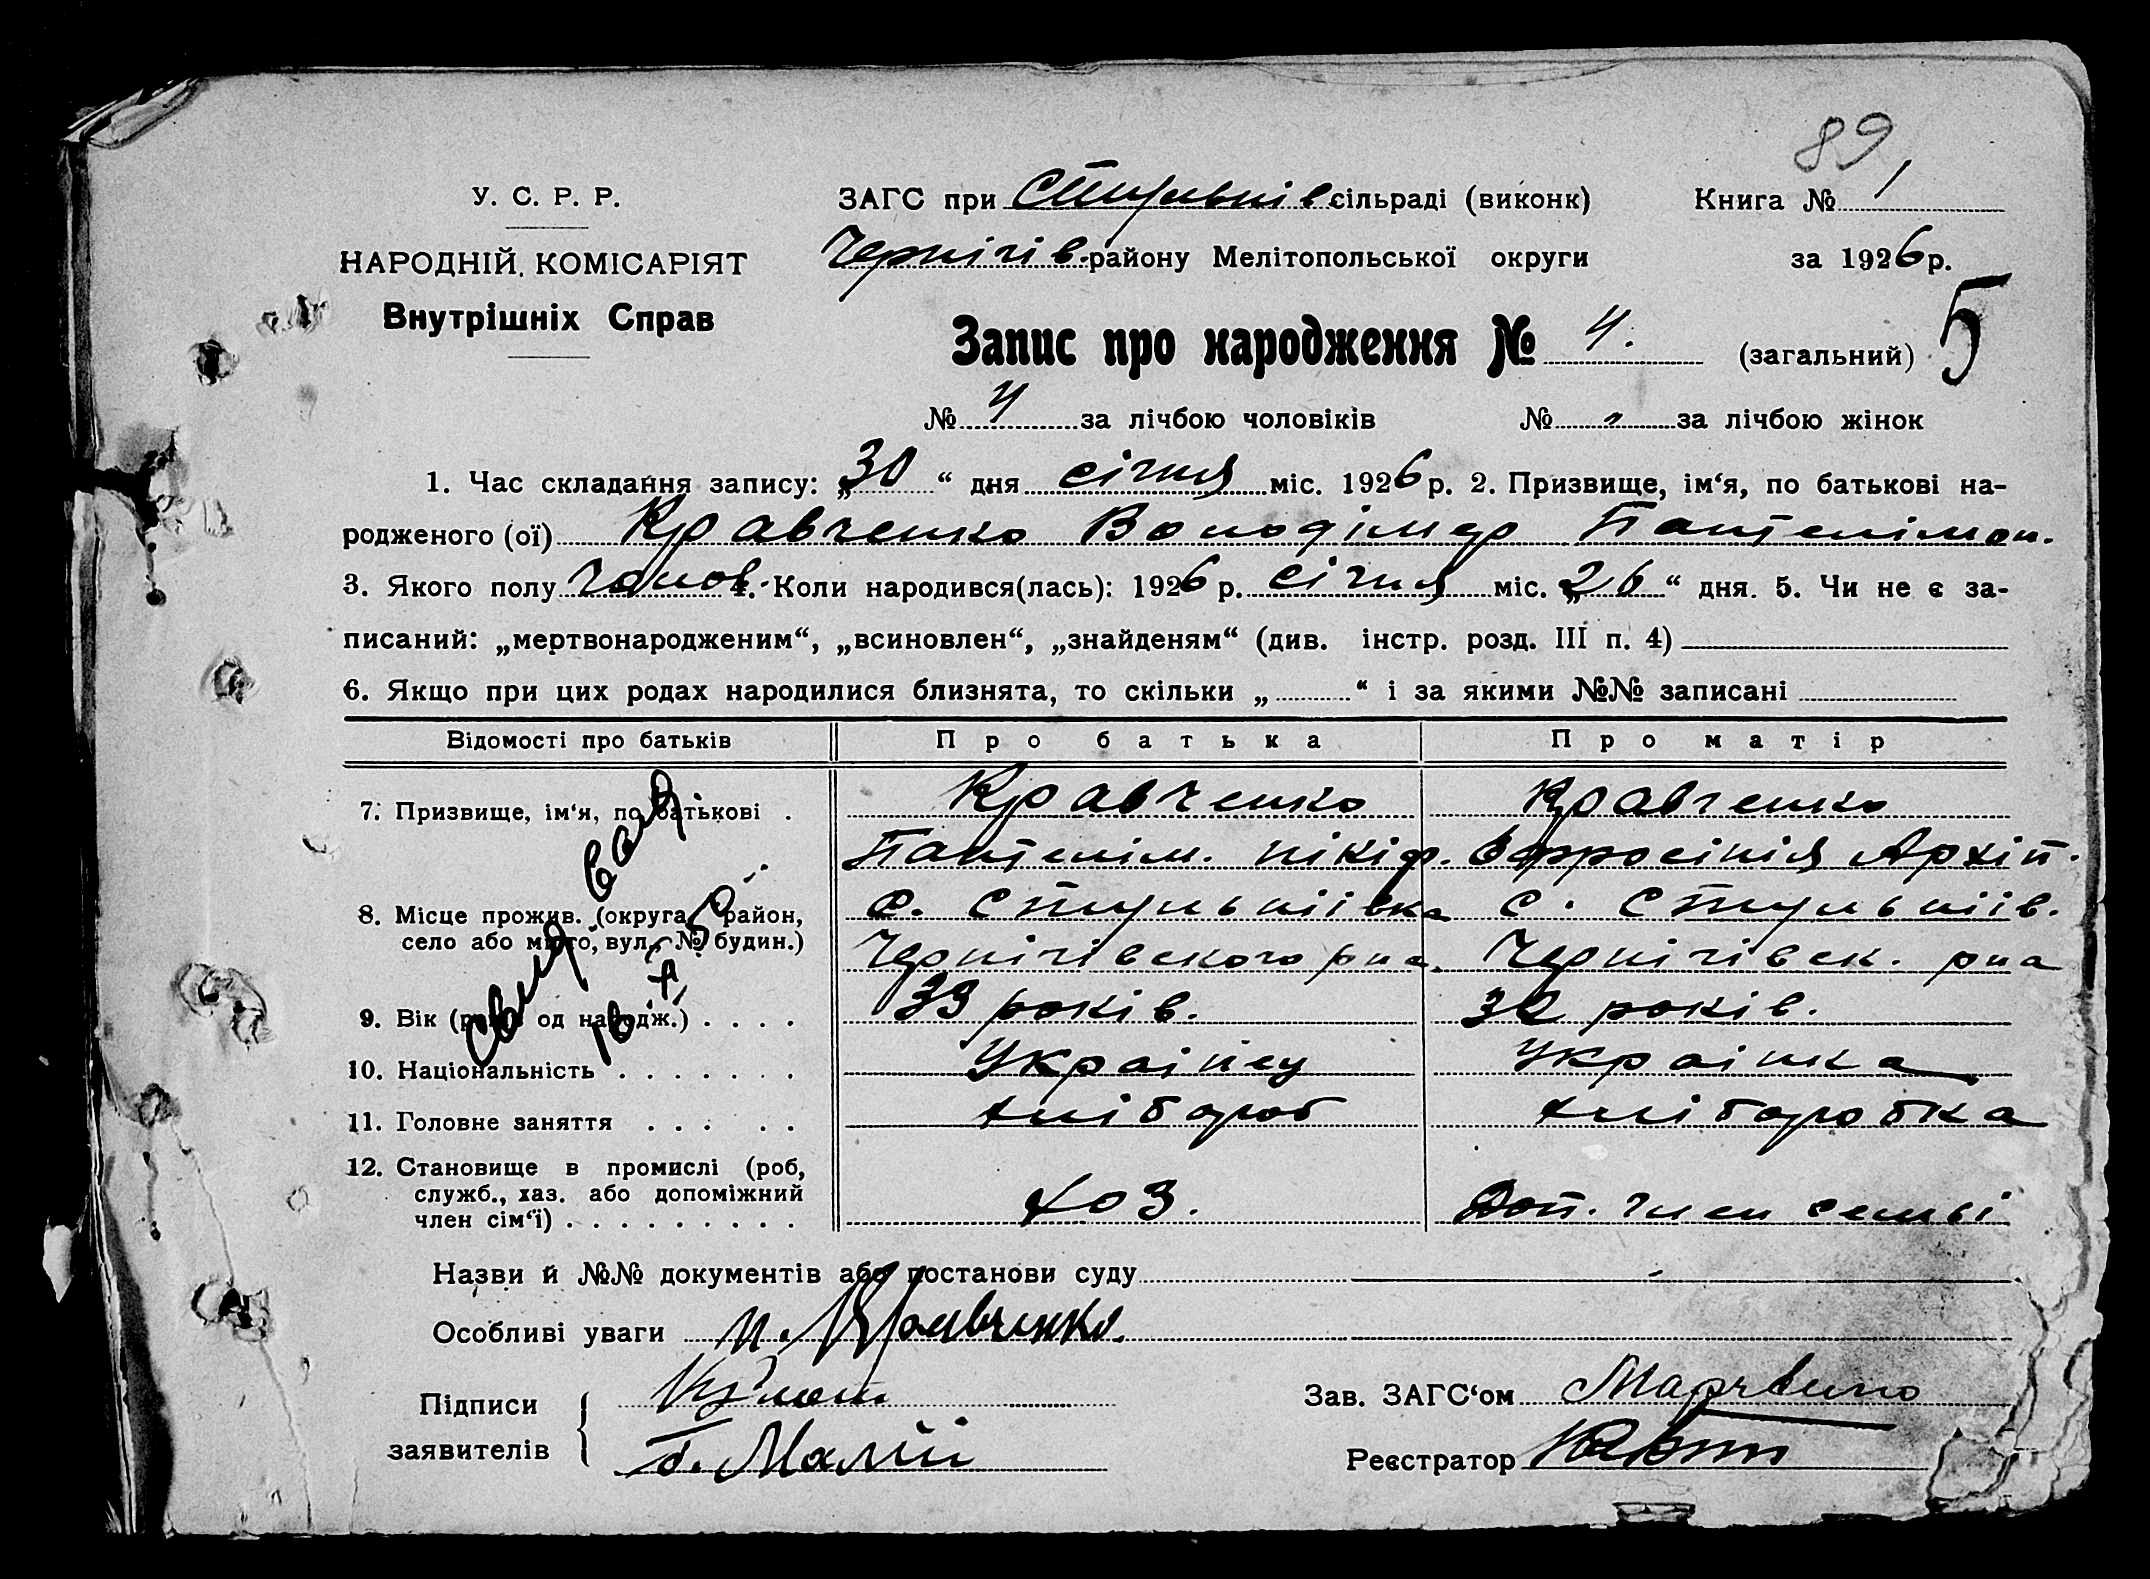 89
У. С. Р. Р.
НАРОДНІЙ. КОМІСАРІЯТ
Внутрішніх Справ
ЗАГС при Стульнів сільраді (виконк)
Книга № 1
Чернігів. району Мелітопольської округи
за 1926 р.
Запис про народження № 4. (загальний) 5
№ 4 за лічбою чоловіків № за лічбою жінок
1. Час складання запису: „30“ дня січня міс. 1926 р. 2. Призвище, ім‘я, по батькові на-
родженого (ої) Кравченко Володімер Пантелімон.
3. Якого полу чолов. 4. Коли народився(лась): 1926 р. січня міс. „26“ дня. 5. Чи не є за-
писаний: „мертвонародженим“, „всиновлен“, „знайденям“ (див. інстр. розд. III п. 4)
6. Якщо при цих родах народилися близнята, то скільки „ “ і за якими №№ записані
Відомості про батьків Про батька Про матір
7. Призвище, ім‘я, по батькові . Кравченко Кравченко
Пантелім. Нікіф. Єфросінія Архіп.
8. Місце прожив. (округа, район, с. Стульніівка с. Стульніів.
село або місто, вул., № будин.) Чернігівского рна. Чернігівск. рна
9. Вік (років од народж.) . . . . 39 років. 32 років.
10. Національність . . . . . . . Українец Українка
11. Головне заняття . . . . . хлібороб хлiборобка
12. Становище в промислі (роб,
служб., хаз. або допоміжний
член сім‘ї) . . . . . . . . . хоз. Доп. член семьі
Назви й №№ документів або постанови суду
Особливі уваги П. Кравченко.
Підписи
заявителів
Зав. ЗАГС‘ом
Реєстратор